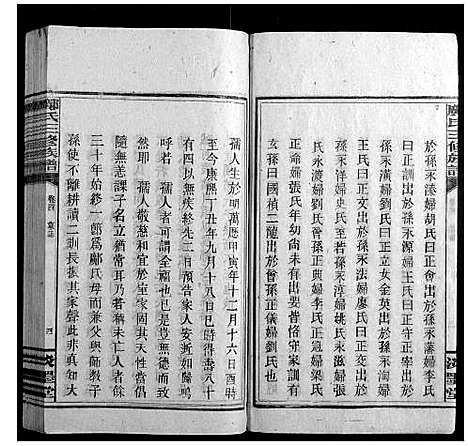 鄺氏三修族譜
於孫永湊婦胡氏曰正會出於孫永藩婦李氏
曰正朝出於孫永源婦王氏曰正女曰正金出
於孫永潢婦劉氏曰正儒出於孫永滋婦張氏
王氏曰正文出於孫永法婦廖氏曰正玉出於
孫永洋婦史氏至若孫永淳婦姚氏永澈婦楊
氏永渡婦劉氏曾孫正典婦李氏正瀛婦梁氏
正命婦張氏年幼尚未有出要皆恪守家訓者
玄孫曰國楨二龍出於曾孫正儀婦劉氏也
孺人生於明萬曆甲寅年十二月十六日酉時
至今康熙丁丑年九月十八日巳時壽八十
有四以無疾終先二日預告家人安逝如歸鳴
呼若 孺人者可謂全福也已是豈無德而致
然耶 孺人敬慈和宜於室家固其常也而獨
隨無恙課子名立猶常耳乃若稱未亡人者
三十年始終一節爲鄺氏母而兼父與師教子
孫使不離耕讀二訓長振其家聲此非真知大
鄺氏三修族譜
卷首
四